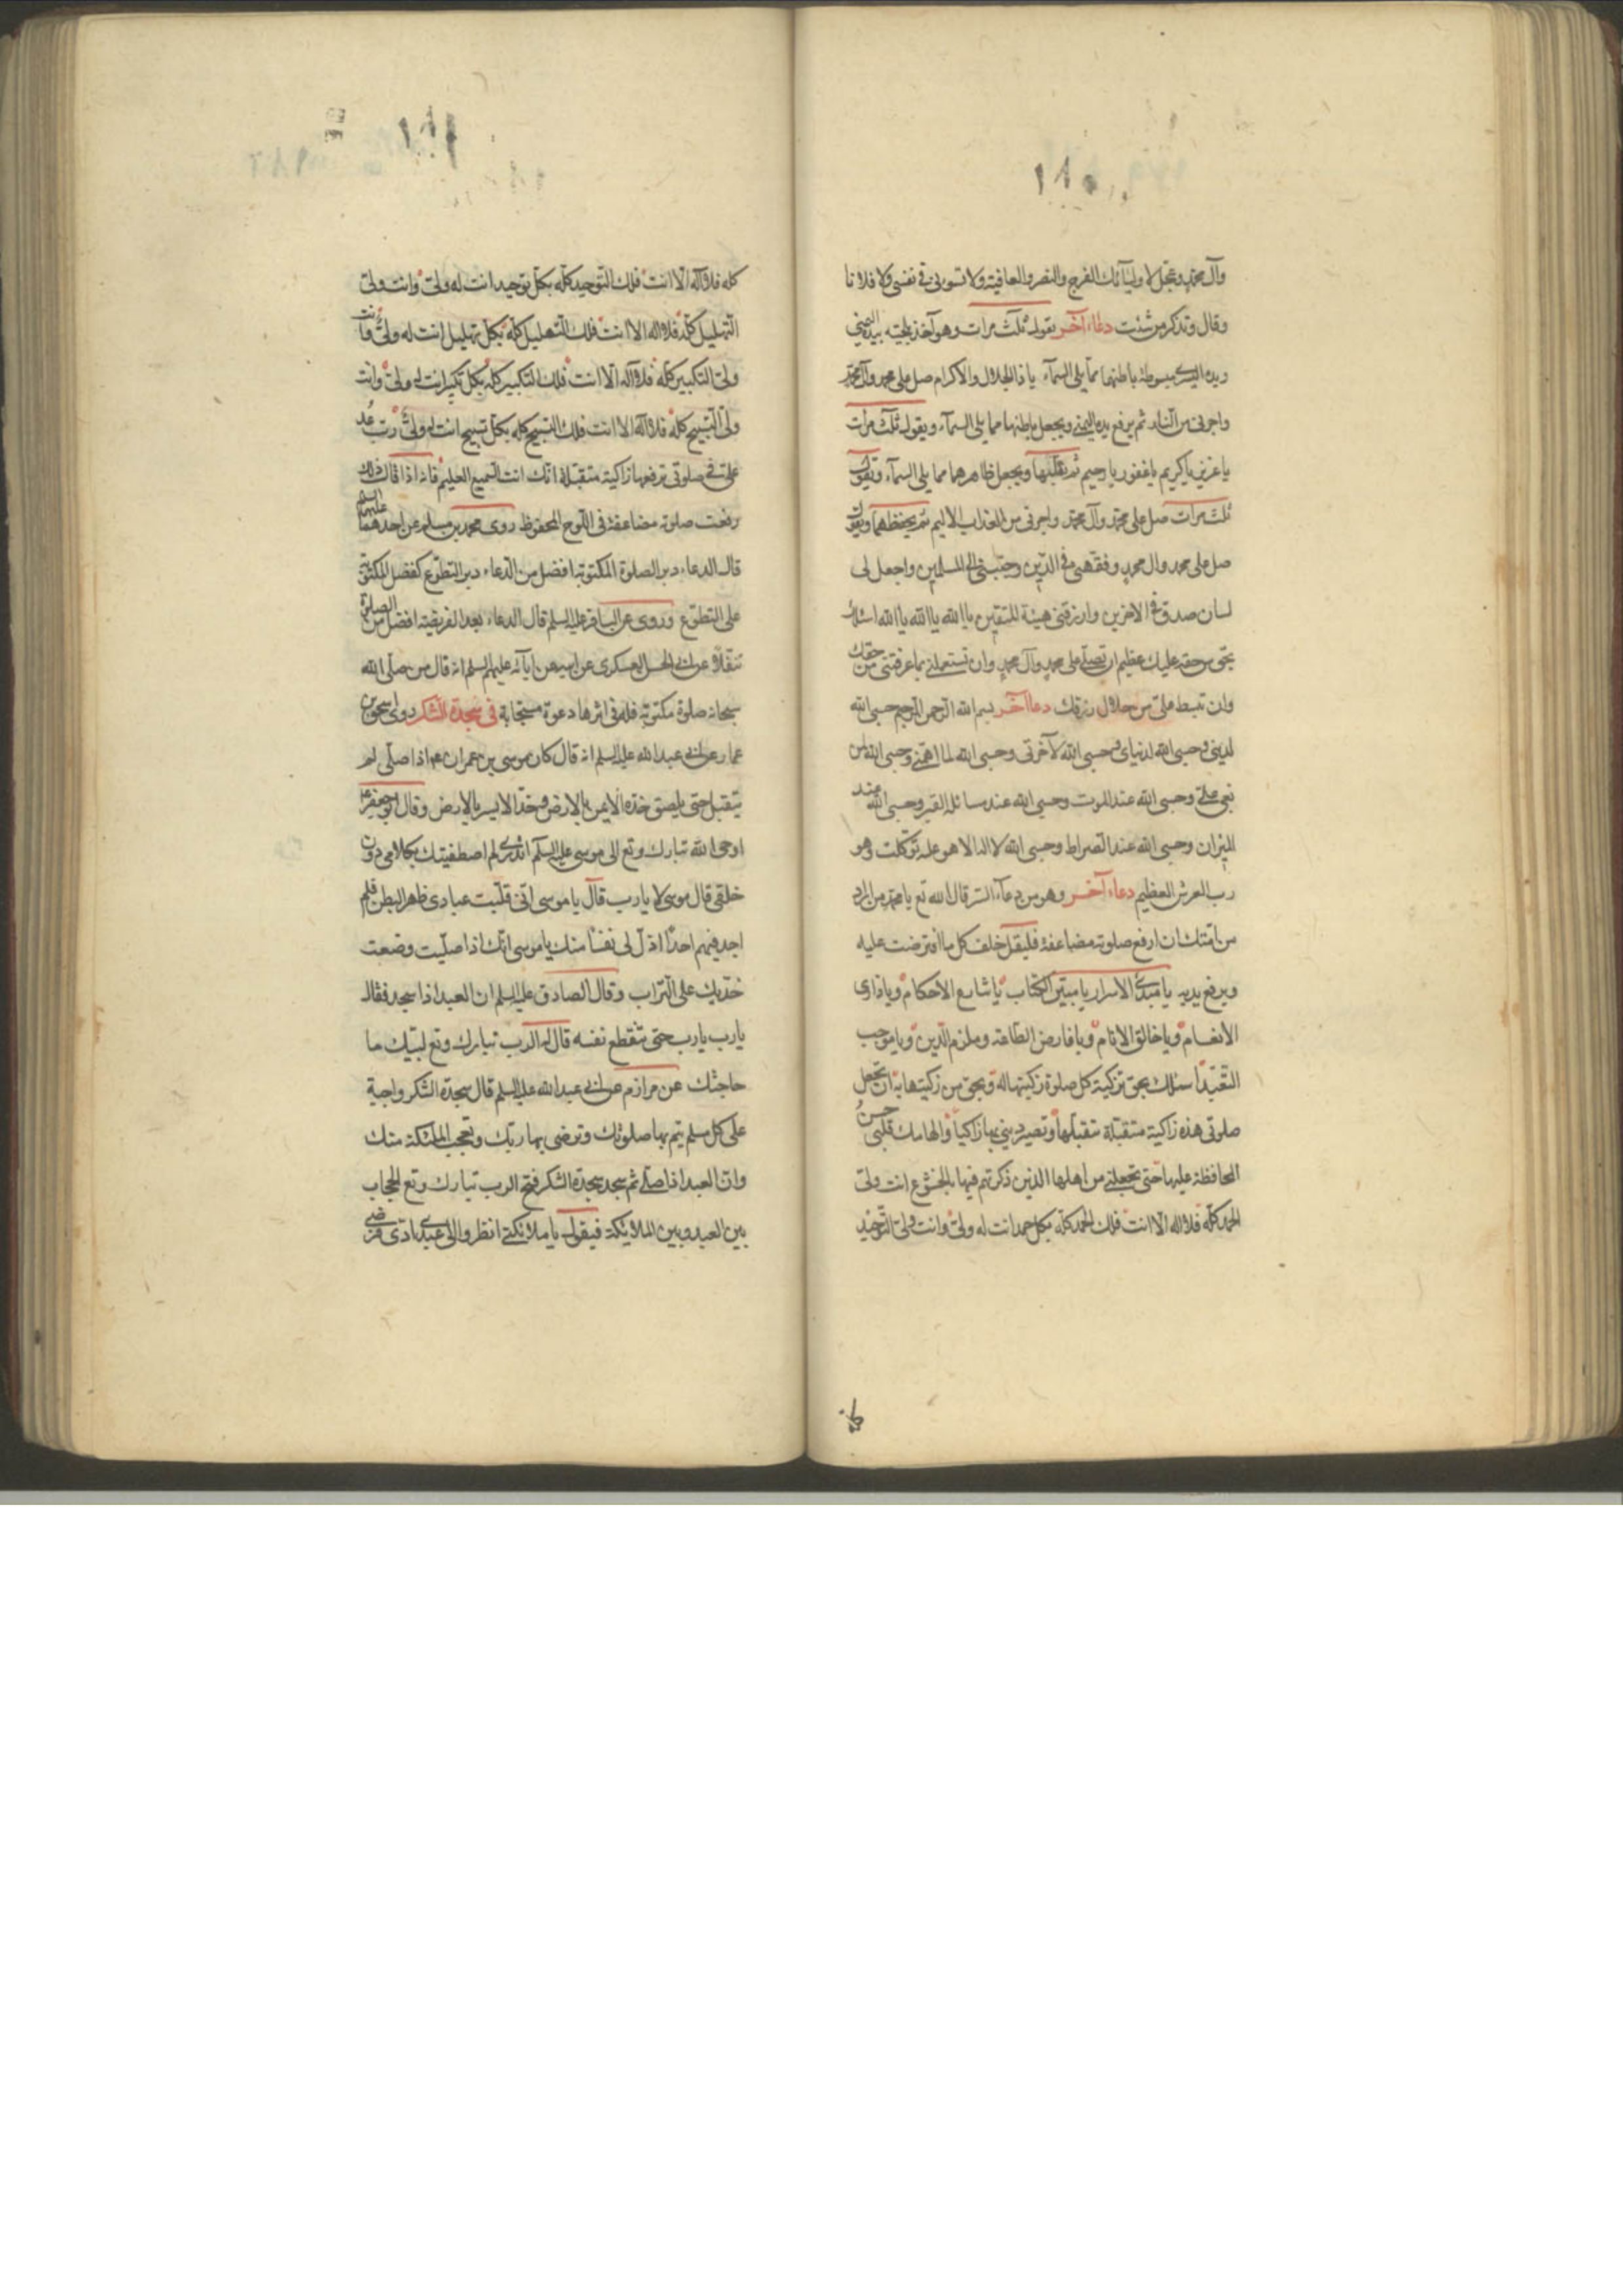 ١٨٠
وآل محمد وعجل لاوليآئك الفرج والنصر والعافية ولا تسوءني في نفسي ولا فلانا
وقال وتذكر من شئت دعاء آخر يقول ثلث مرات وهو آخذ بلحيته بيده اليمنى
ويده اليسرى مبسوطة باطنها مما يلي السمآء يا ذا الجلال والاكرام صل على محمد وآل محمد
واجرني من النار ثم يرفع يده اليمنى ويجعل باطنها مما يلي السمآء ويقول ثلث مرات
يا عزيز يا كريم يا غفور يا رحيم ثم يقلبها ويجعل ظاهرهما مما يلي السمآء ويقول
ثلث مرات صل على محمد وآل محمد واجرني من العذاب الاليم ثم يخفظهما ويقول
صل على محمد وال محمد وفقهني في الدين وحببني الى المسلمين واجعل لي
لسان صدق في الاخرين وارزقني هيبة المتقين يا الله يا الله يا الله اسئلك
بحق من حقه عليك عظيم ان تصلي على محمد وآل محمد وان تستعملني بما عرفتني من حقك
وان تبسط علي من حلال رزقك دعا آخر بسم الله الرحمن الرحيم حسبي الله
لديني وحسبي الله لدنياي وحسبي الله لآخرتي وحسبي الله لما اهمني وحسبي الله لمن
بغى علي وحسبي الله عند الموت وحسبي الله عند مسائلة القبر وحسبي الله عند
الميزان وحسبي الله عند الصراط وحسبي الله لا اله الا هو عليه توكلت وهو
رب العرش العظيم دعاء آخر وهو من دعآء السر قال الله تع يا محمد من اراد
من امتك ان ارفع صلوته مضاعفة فليقل خلف كل ما افترضت عليه
ويرفع يديه يا مبدئ الاسرار يا مبين الكتاب يا شارع الاحكام ويا ذارئ
الانعام ويا خالق الانام ويا فارض الطاعة وملزم الدين ويا موجب
التعبد أسئلك بحق تزكية كل صلوة زكيتها له وبحق من زكيتها به ان تجعل
صلوتي هذه زاكية متقبلة بتقبلها وتصير ديني بها زاكيا والهامك قلبي حسن
المحافظة عليها حتى تجعلني من اهلها الذين ذكرتهم فيها بالخشوع انت ولي
الحمد كله فلا اله الا انت فلك الحمد كله بكل حمد انت له ولي وانت ولي التوحيد
كله
١٨١
كله فلا اله الا انت فلك التوحيد كله بكل توحيد انت له ولي وانت ولي
التهليل كله فلا اله الا انت فلك التهليل كله بكل تهليل انت له ولي وانت
ولي التكبير كله فلا اله الا انت فلك التكبير كله بكل تكبير انت له ولي وانت
ولي التسبيح كله فلا اله الا انت فلك التسبيح كله بكل تسبيح انت له ولي رب عد
علي في صلوتي ترفعها زاكية متقبلة انك انت السميع العليم فانه اذا قال ذلك
رفعت صلوته مضاعفة في اللوح المحفوظ روى محمد بن مسلم عن احدهما عليهما السلم
قال الدعاء دبر الصلوة المكتوبة افضل من الدعاء دبر التطوع كفضل المكتوبة
على التطوع وروى عن الباقر عليه السلم قال الدعاء بعد الفريضة افضل من الصلوة
تنفلا وعن ابي الحسن العسكري عن ابيه عن ابآئه عليهم السلم انه قال من صلى الله
سبحانه صلوة مكتوبة فله في اثرها دعوة مستجابة في سجدة الشكر روى اسحق بن
عمار عن ابي عبد الله عليه السلم انه قال كان موسى بن عمران ع اذا صلى لم
يتقبل حتى يلصق خده الايمن بالارض وخده الايسر بالارض وقال ابو جعفر ع
اوحى الله تبارك وتع الى موسى عليه السلم اتدري لم اصطفيتك بكلامي دون
خلقي قال موسى لا يا رب قال يا موسى اني قلبت عبادي ظهرا لبطن فلم
اجد فيهم احدا اذل لي نفسا منك يا موسى انك اذا صليت وضعت
خديك على التراب وقال الصادق عليه السلم ان العبد اذا سجد فقال
يا رب يا رب حتى تنقطع نفسه قال له الرب تبارك وتع لبيك ما
حاجتك عن مرازم عن ابي عبد الله عليه السلم قال سجدة الشكر واجبة
على كل مسلم يتم بها صلوتك وترضى بها ربك وتعجب الملئكة منك
وان العبد اذا صلى ثم سجد سجدة الشكر فتح الرب تبارك وتع الحجاب
بين العبد وبين الملائكة فيقول يا ملائكتي انظروا الى عبدي ادى فرضي